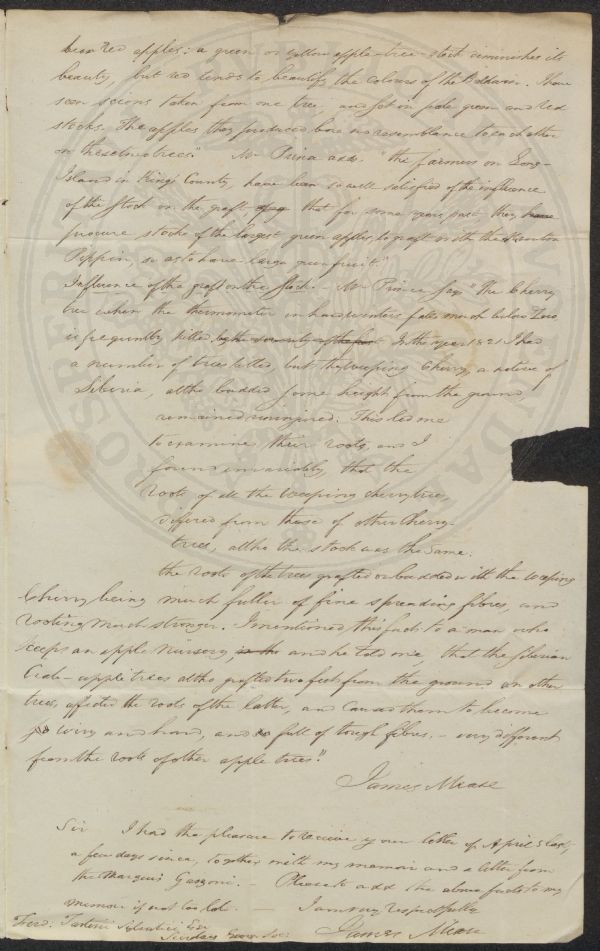 bears red apples: a green or yellow apple-tree-stock diminishes its
beauty, but red tends to beautify the colours of the Baldwin. I have
seen scions taken from one tree, and set in pale green and red
stocks. The apples they produced bore no resemblance to each other
on these two trees." Mr Prince adds. "the farmers on Long-
Island in King's County, have been so well satisfied of the influence
of the stock on the graft, that for some years past they have
procure stocks of the largest green apples, to graft with the Newton
Pippin, so as to have large green fruit."
Influence of the graft on the Stock. - Mr Prince says "the Cherry
tree when the thermometer in hard winters falls much below Zero
is frequently killed, by the severity of the frost. In the year 1821 I had
a number of trees killed, but the weeping Cherry, a native of
Siberia, altho budded some height from the ground
remained uninjured. This led me
to examine their roots, and I
found invariably, that the
roots of all the weeping cherry trees,
differed from those of other Cherry-
trees, altho the stock was the same:
the roots of the trees grafted or budded with the weeping
Cherry being much fuller of fine spreading fibres, and
rooting much stronger. I mentioned this fact to a man who
keeps an apple nursery, and he told me, that the Siberian
Crab-apple trees altho grafted two feet from the ground on other
trees, affected the roots of the latter, and caused them to become
so wiry and hard, and so full of tough fibres, - very different
from the roots of other apple trees."
James Mease
Sir I had the pleasure to receive your letter of April 5 last,
a few days since, together with my memoir and a letter from
the Marquis Garzoni. - Please to add the above facts to my
memoir if not too late. - I am very respectfully
Ferd: Tartini
James Mease